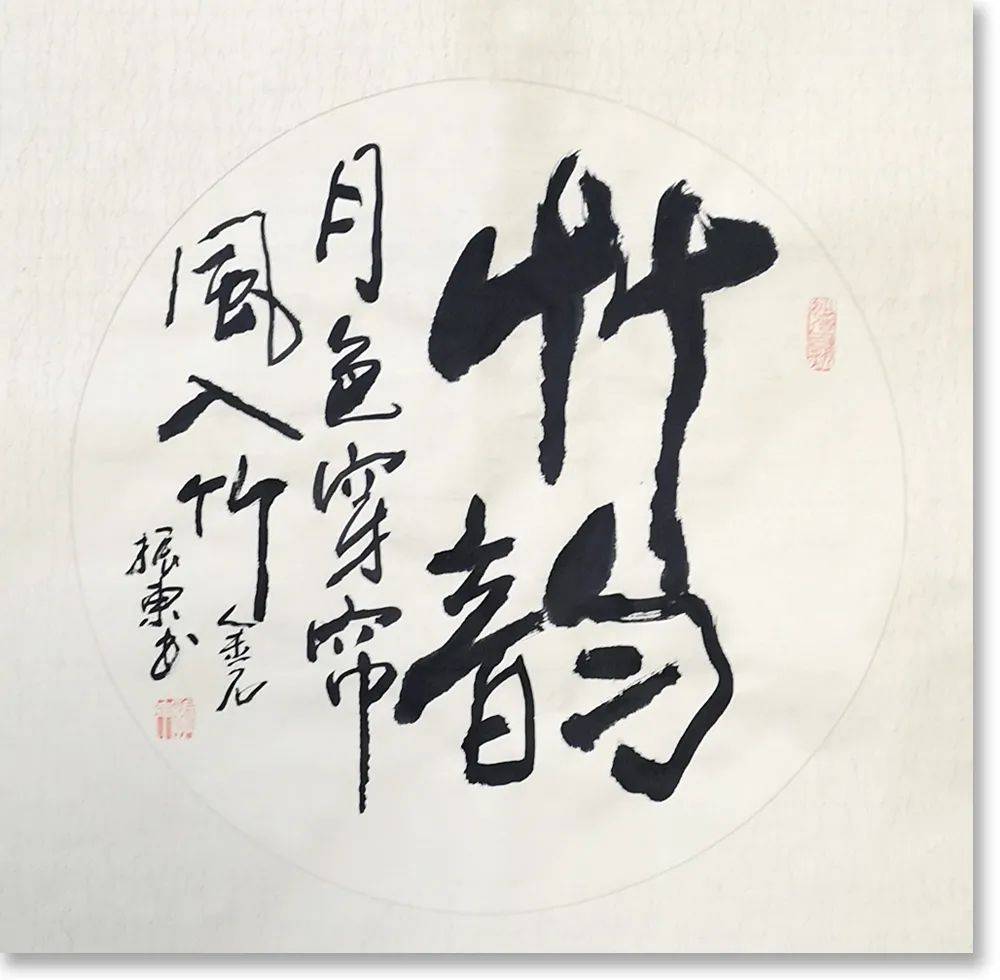 竹韵
月色穿帘
風入竹
金石
振東书